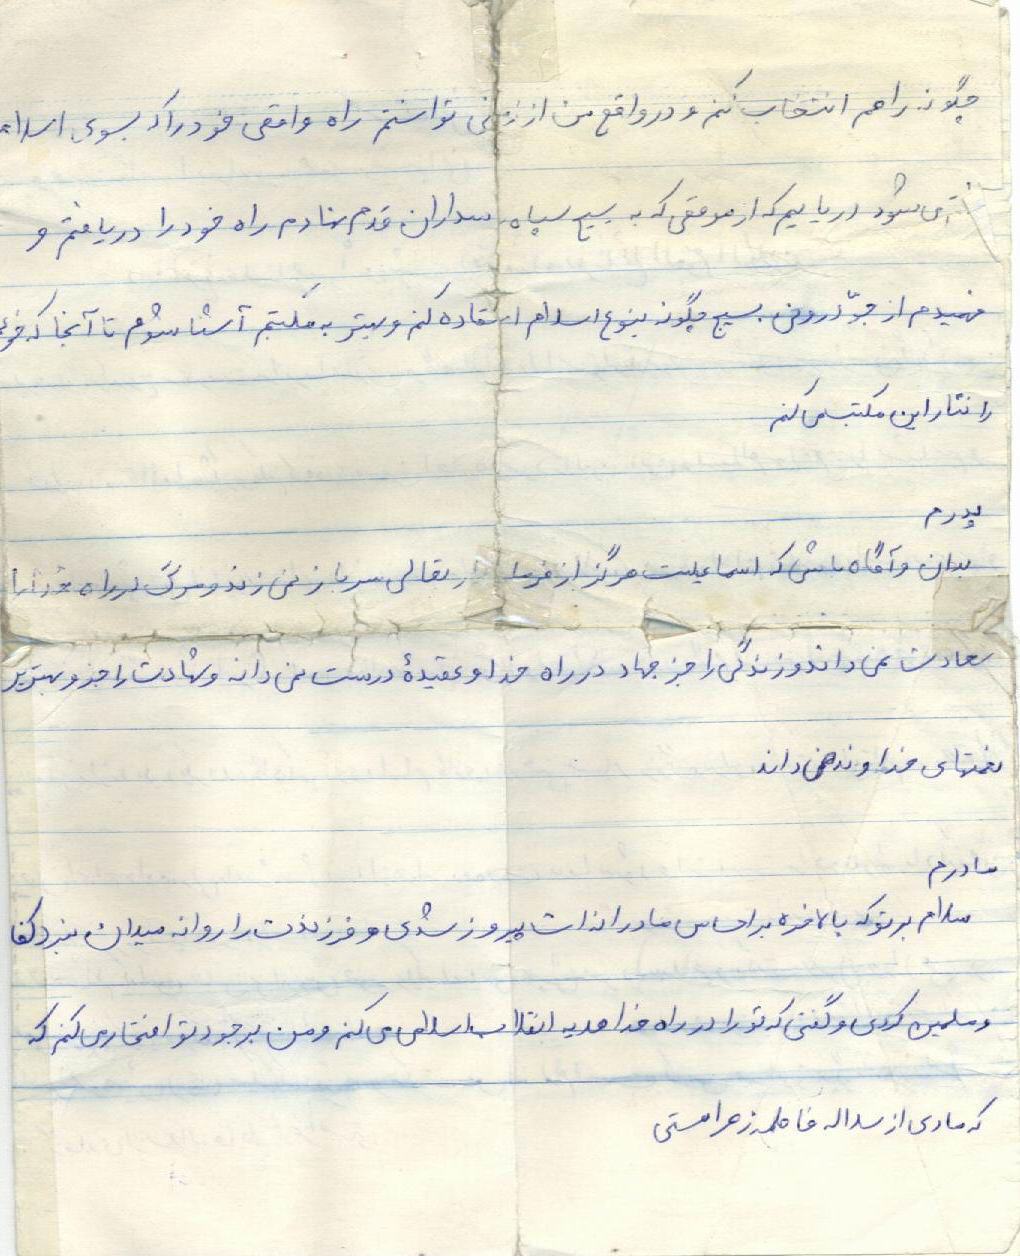 چگونه راهم انتخاب کنم و در واقع من از زمانی توانستم راه واقعی خود را که بسوی اسلام
می شود دریابیم که از موقعی که به بسیج سپاه پاسداران قدم نهادم راه خود را دریافتم و
فهمیدم از جوّ درونی بسیج چگونه بنوع اسلام استفاده کنم و بهتر به مکتبم آشنا شوم تا آنجا که
را نثار این مکتب می کنم
پدرم
بدان و آگاه باش که اسماعیلت هرگز از تعالی سر باز نمی زند و مرگ در راه خدا را
سعادت می داند و زندگی را جز جهاد در راه خدا و عقیدهٔ درست نمی داند و شهادت را جزو بهترین
نعمتهای خداوند می داند
مادرم
سلام بر تو که بالاخره بر احساس مادرانه ات پیروز شدی و فرزندت را روانه میدان نبرد کفار
و مسلمین کردی و گفتی که تو را در راه خدا هدیه انقلاب اسلامی می کنم و من بوجود تو افتخار می کنم که
که مادری از سلاله فاطمه زهرا هستی